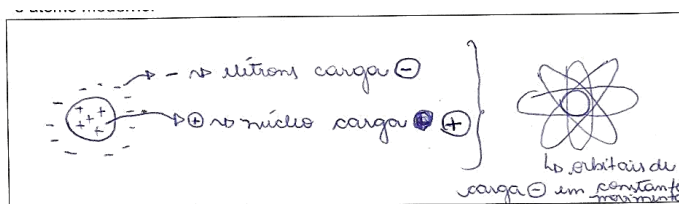 o átomo moderno.
- → elétrons carga ⊖
⊕ → núcleo carga ⊕
↳ orbitais de
carga ⊖ em constante
movimento